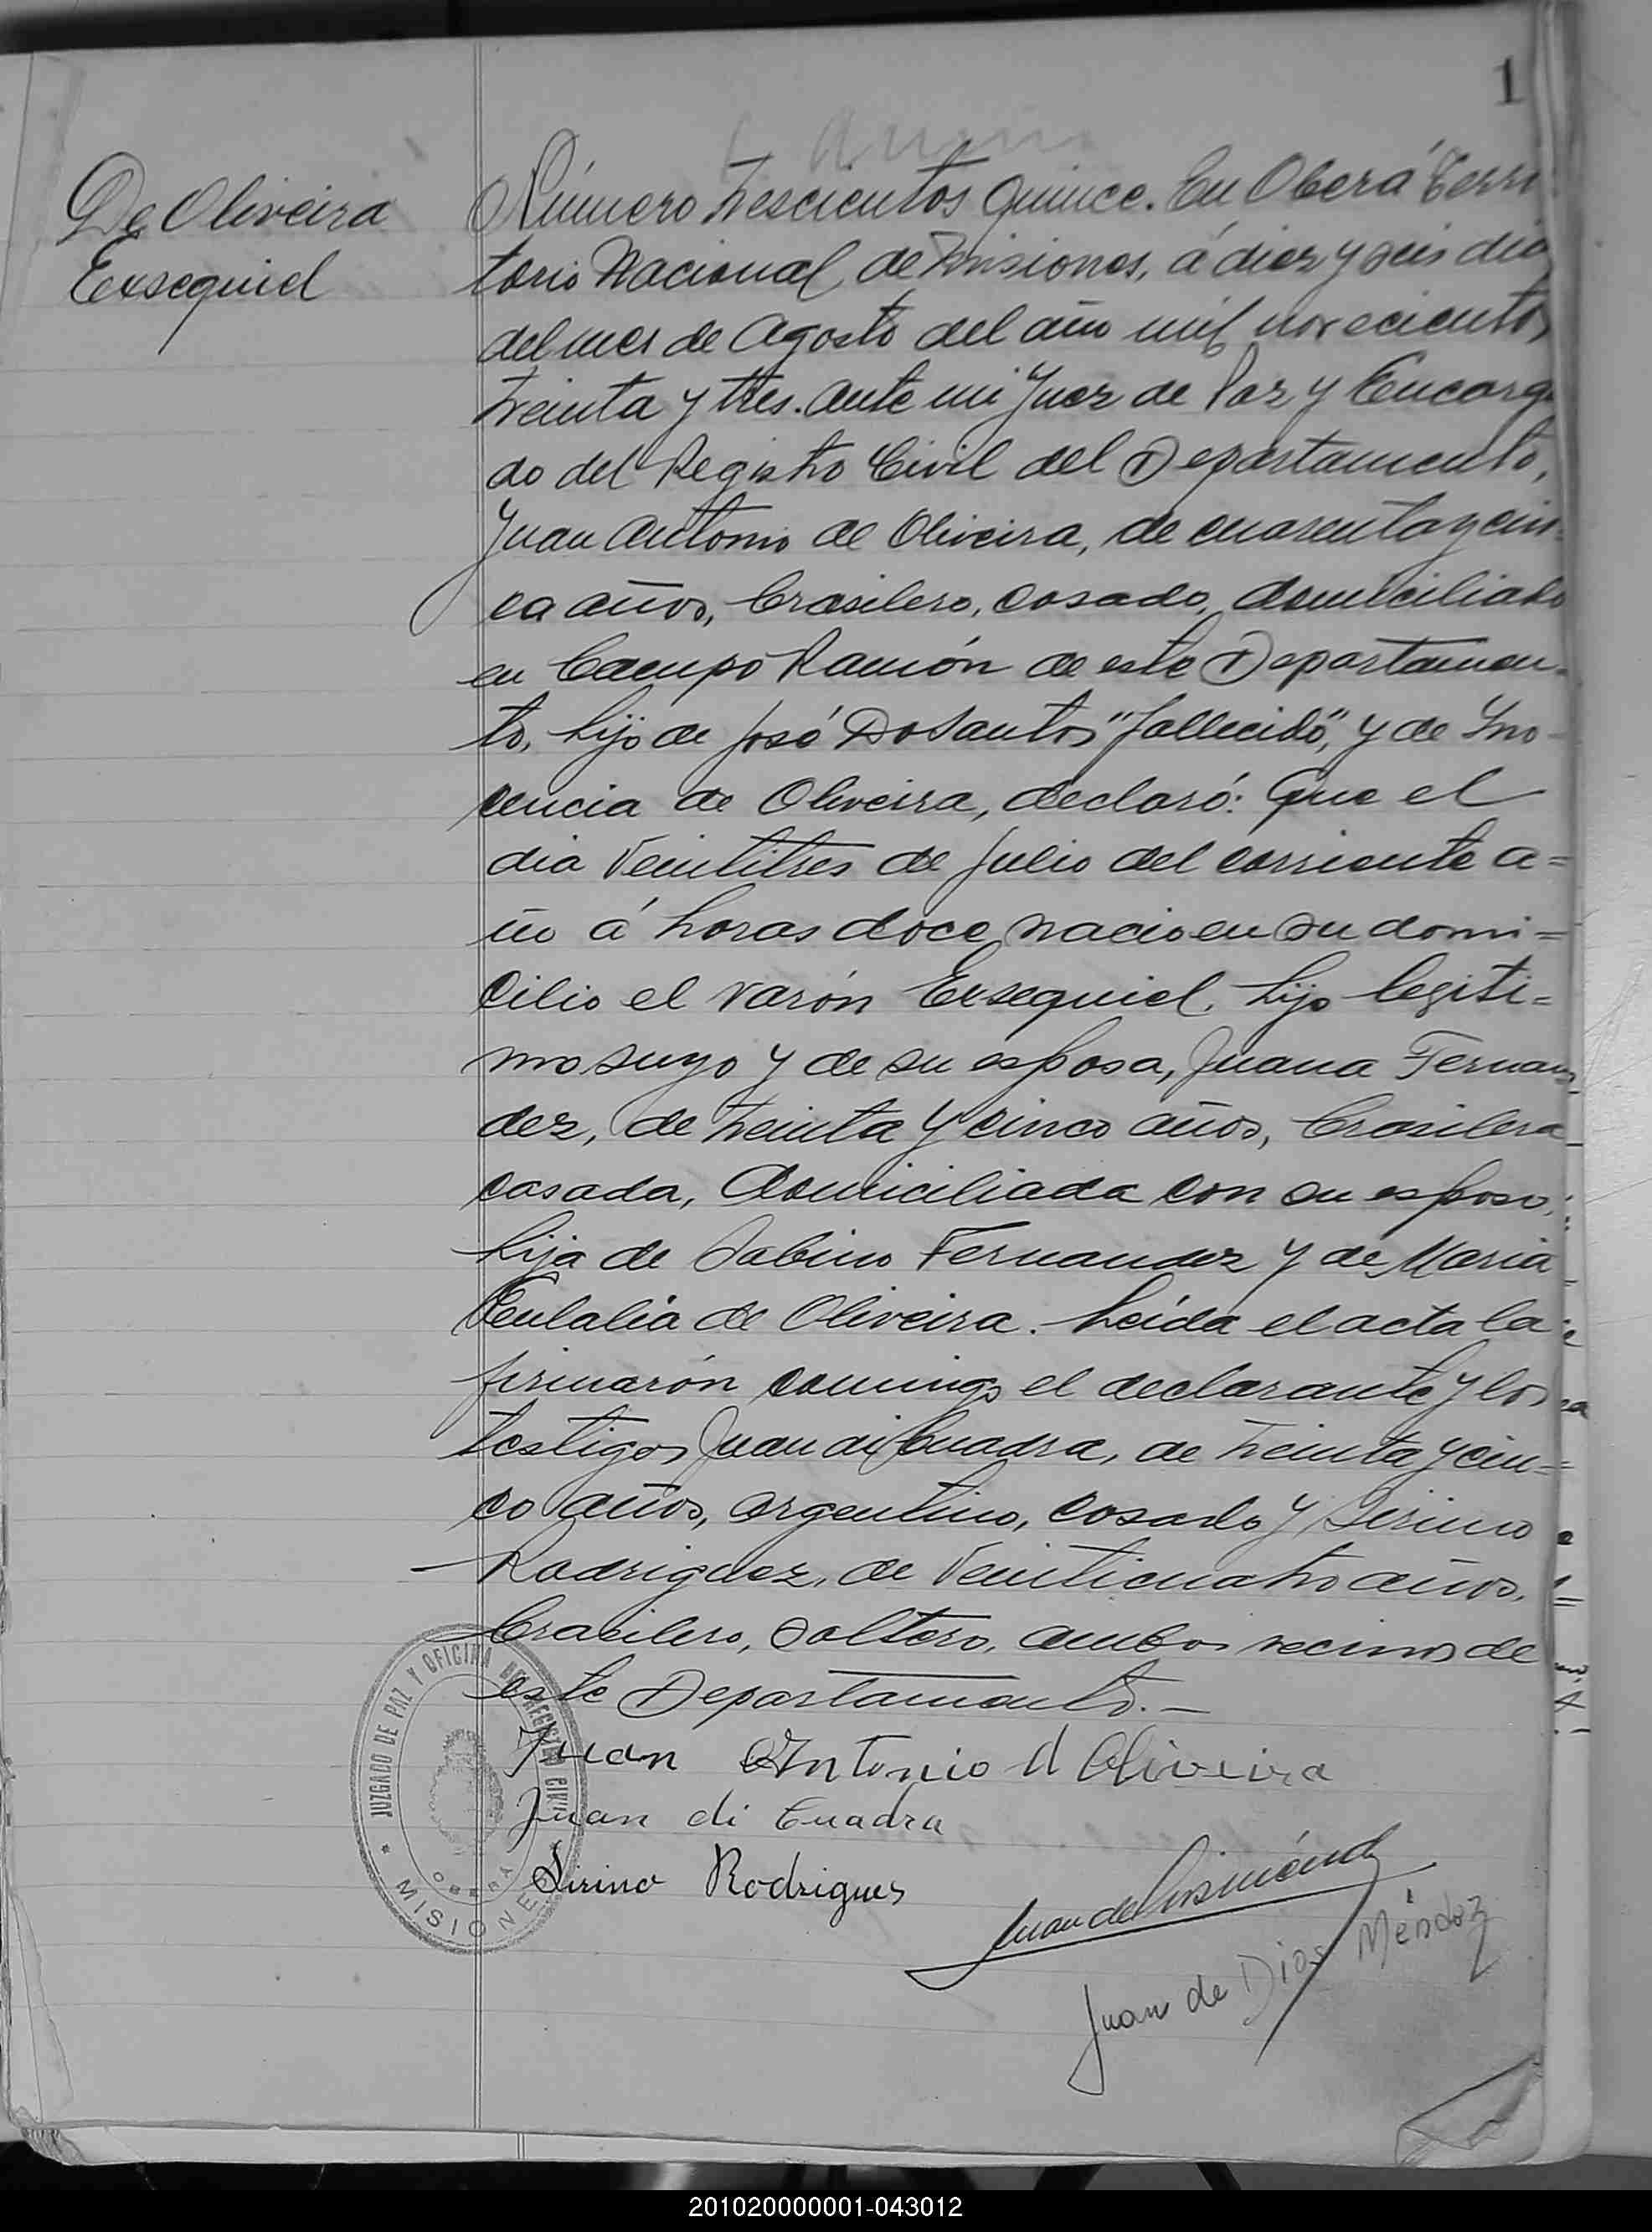 1
De Oliveira
Exsequiel
Número trescientos quince. En Oberá Terri
torio Nacional de Misiones, á diez y seis dia
del mes de Agosto del año mil novecientos
treinta y tres. ante mi Juez de Paz y Encarga
do del Registro Civil del Departamento,
Juan Antonio de Oliveira, de cuarenta y cin
co años, brasilero, casado, domiciliado
en Campo Ramón de este Departamen-
to, hijo de José DoSantos "fallecido", y de Ino-
cencia de Oliveira, declaró: Que el
dia Veintitres de Julio del corriente a=
ño á horas doce nacio en su domi=
cilio el varón Exsequiel, hijo legiti=
mo suyo y de su esposa, Juana Fernan
dez, de treinta y cinco años, brasilera
casada, domiciliada con su esposo,
hija de Sabino Fernandez y de Maria
Eulalia de Oliveira. Leida el acta la
firmarón conmigo el declarante y los
testigos Juan di Cuadra, de treinta y cin=
co años, argentino, casado y Sirino
Rodriguez, de Veinticuatro años,
brasilero, soltero, ambos vecinos de
este Departamento.-
Juan Antonio d Oliveira
Juan di Cuadra
Sirino Rodrigues
Juan de Dios Méndez
JUZGADO DE PAZ Y OFICINA DEL REGISTRO CIVIL
OBERA
* MISIONES
201020000001-043012